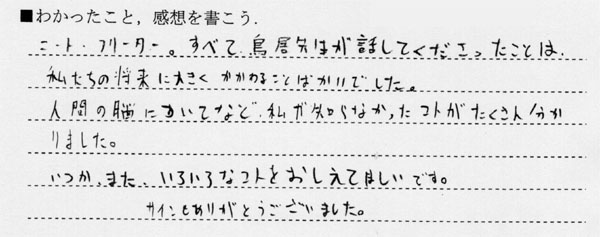 ■わかったこと，感想を書こう．
ニート・フリーター。すべて、鳥居先生が話してくださったことは、
私たちの将来に大きくかかわることばかりでした。
人間の脳においてなど、私が知らなかったコトがたくさん分か
りました。
いつか、また、いろいろなコトをおしえてほしいです。
サインもありがとうございました。